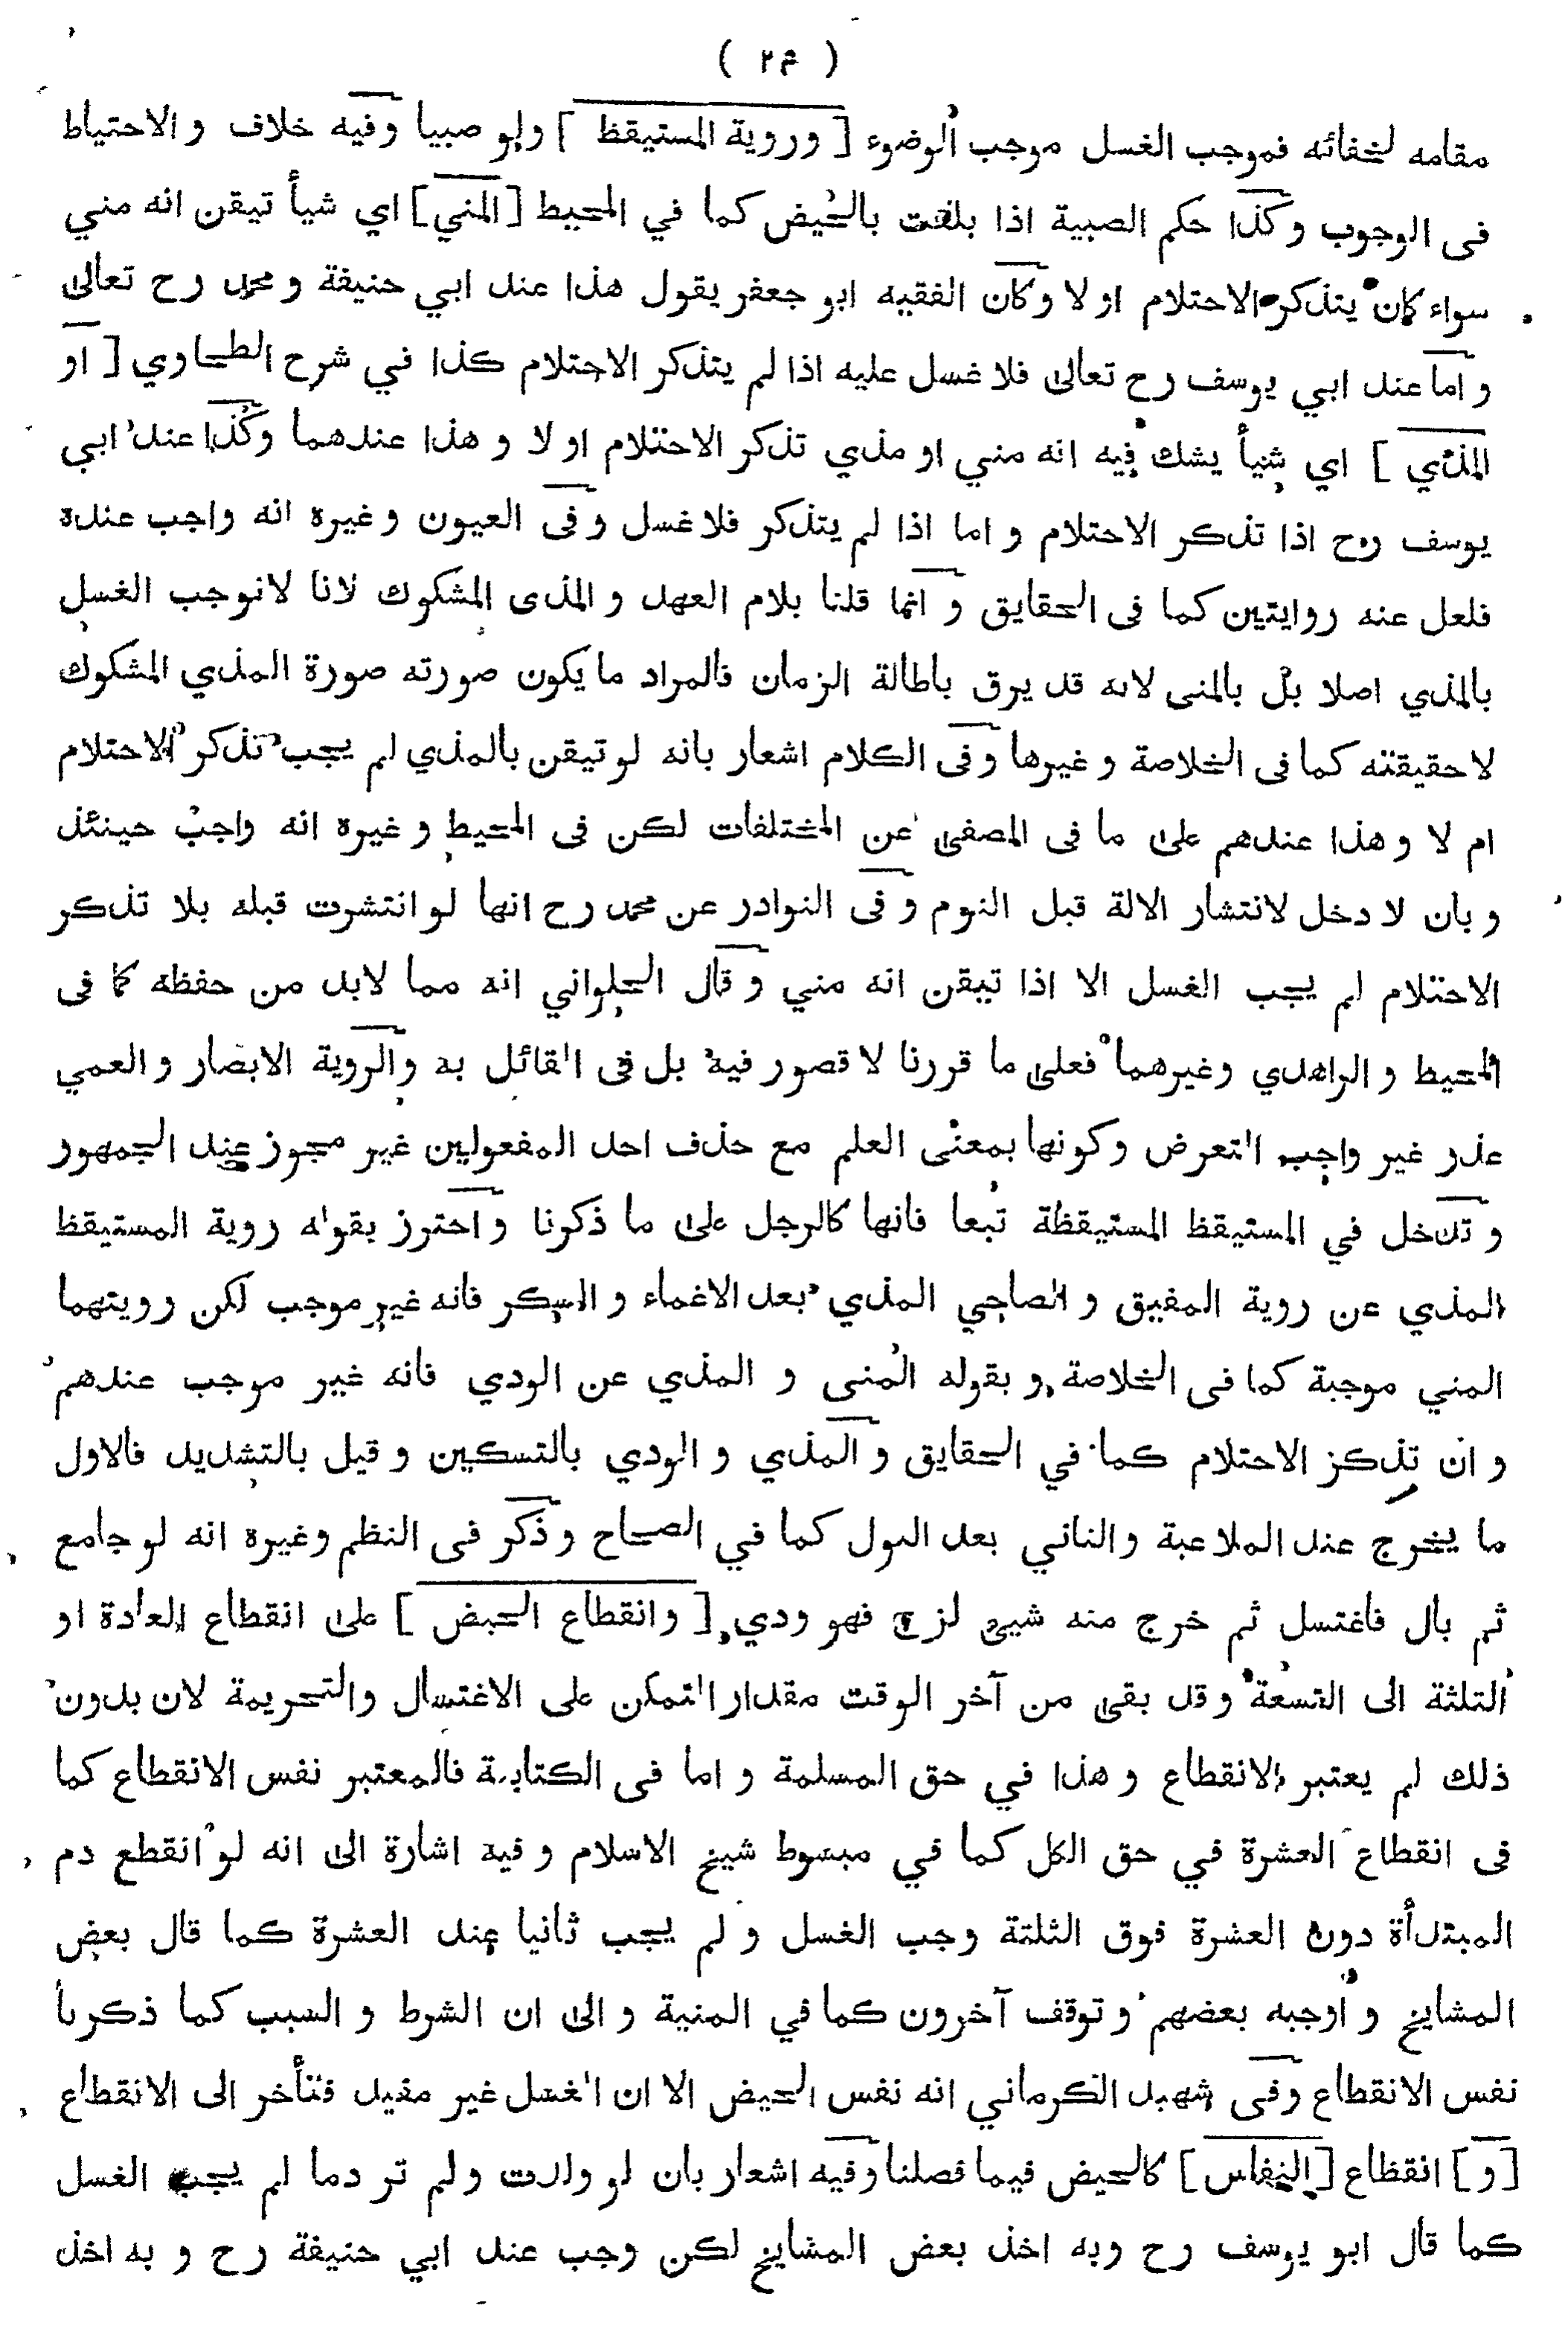 ( ٢٤ )
مقامه لخفائه فموجب الغسل موجب الوضوء [ وروية المستيقظ ] ولو صبيا وفيه خلاف و الاحتياط
فى الوجوب وكذا حكم الصبية اذا بلغت بالحيض كما في المحيط [المني] اي شيأ تيقن انه مني
سواء كان يتذكر الاحتلام او لا وكان الفقيه ابو جعفر يقول هذا عند ابي حنيفة و محمد رح تعالى
و اما عند ابي يوسف رح تعالى فلا غسل عليه اذا لم يتذكر الاحتلام كذا في شرح الطحاوي [ او
المذي ] اي شيأ يشك فيه انه مني او مذي تذكر الاحتلام او لا و هذا عندهما وكذا عند ابي
يوسف رح اذا تذكر الاحتلام و اما اذا لم يتذكر فلا غسل و فى العيون و غيره انه واجب عنده
فلعل عنه روايتين كما فى الحقايق و انما قلنا بلام العهد و المذى المشكوك لانا لانوجب الغسل
بالمذي اصلا بل بالمنى لانه قد يرق باطالة الزمان فالمراد ما يكون صورته صورة المذي المشكوك
لا حقيقته كما فى الخلاصة و غيرها وفى الكلام اشعار بانه لو تيقن بالمذي لم يجب تذكر الاحتلام
ام لا و هذا عندهم على ما فى المصفى عن المختلفات لكن فى المحيط و غيره انه واجب حينئذ
و بان لا دخل لانتشار الالة قبل النوم و فى النوادر عن محمد رح انها لو انتشرت قبله بلا تذكر
الاحتلام لم يجب الغسل الا اذا تيقن انه مني و قال الحلواني انه مما لابد من حفظه كما فى
المحيط و الزاهدي وغيرهما فعلى ما قررنا لا قصور فيه بل فى القائل به والروية الابصار و العمي
عذر غير واجب التعرض وكونها بمعنى العلم مع حذف احد المفعولين غير مجوز عند الجمهور
و تدخل في المستيقظ المستيقظة تبعا فانها كالرجل على ما ذكرنا و احترز بقوله روية المستيقظ
المذي عن روية المفيق و الصاحي المذي بعد الاغماء و السكر فانه غير موجب لكن رويتهما
المني موجبة كما فى الخلاصة و بقوله المنى و المذي عن الودي فانه غير موجب عندهم
و ان تذكر الاحتلام كما في الحقايق و المذي و الودي بالتسكين و قيل بالتشديد فالاول
ما يخرج عند الملاعبة والثاني بعد البول كما في الصحاح وذكر فى النظم وغيره انه لو جامع
ثم بال فاغتسل ثم خرج منه شيئ لزج فهو ودي [ وانقطاع الحيض ] على انقطاع العادة او
الثلثة الى التسعة و قد بقى من آخر الوقت مقدار التمكن على الاغتسال والتحريمة لان بدون
ذلك لم يعتبر الانقطاع و هذا في حق المسلمة و اما فى الكتابية فالمعتبر نفس الانقطاع كما
فى انقطاع العشرة في حق الكل كما في مبسوط شيخ الاسلام و فيه اشارة الى انه لو انقطع دم
المبتدأة دون العشرة فوق الثلثة وجب الغسل و لم يجب ثانيا عند العشرة كما قال بعض
المشايخ و اوجبه بعضهم و توقف آخرون كما في المنية و الى ان الشرط و السبب كما ذكرنا
نفس الانقطاع وفى شهيد الكرماني انه نفس الحيض الا ان الغسل غير مفيد فتأخر الى الانقطاع
[ و ] انقطاع [ النفاس ] كالحيض فيما فصلنا وفيه اشعار بان لو ولدت ولم تر دما لم يجب الغسل
كما قال ابو يوسف رح وبه اخذ بعض المشايخ لكن وجب عند ابي حنيفة رح و به اخذ